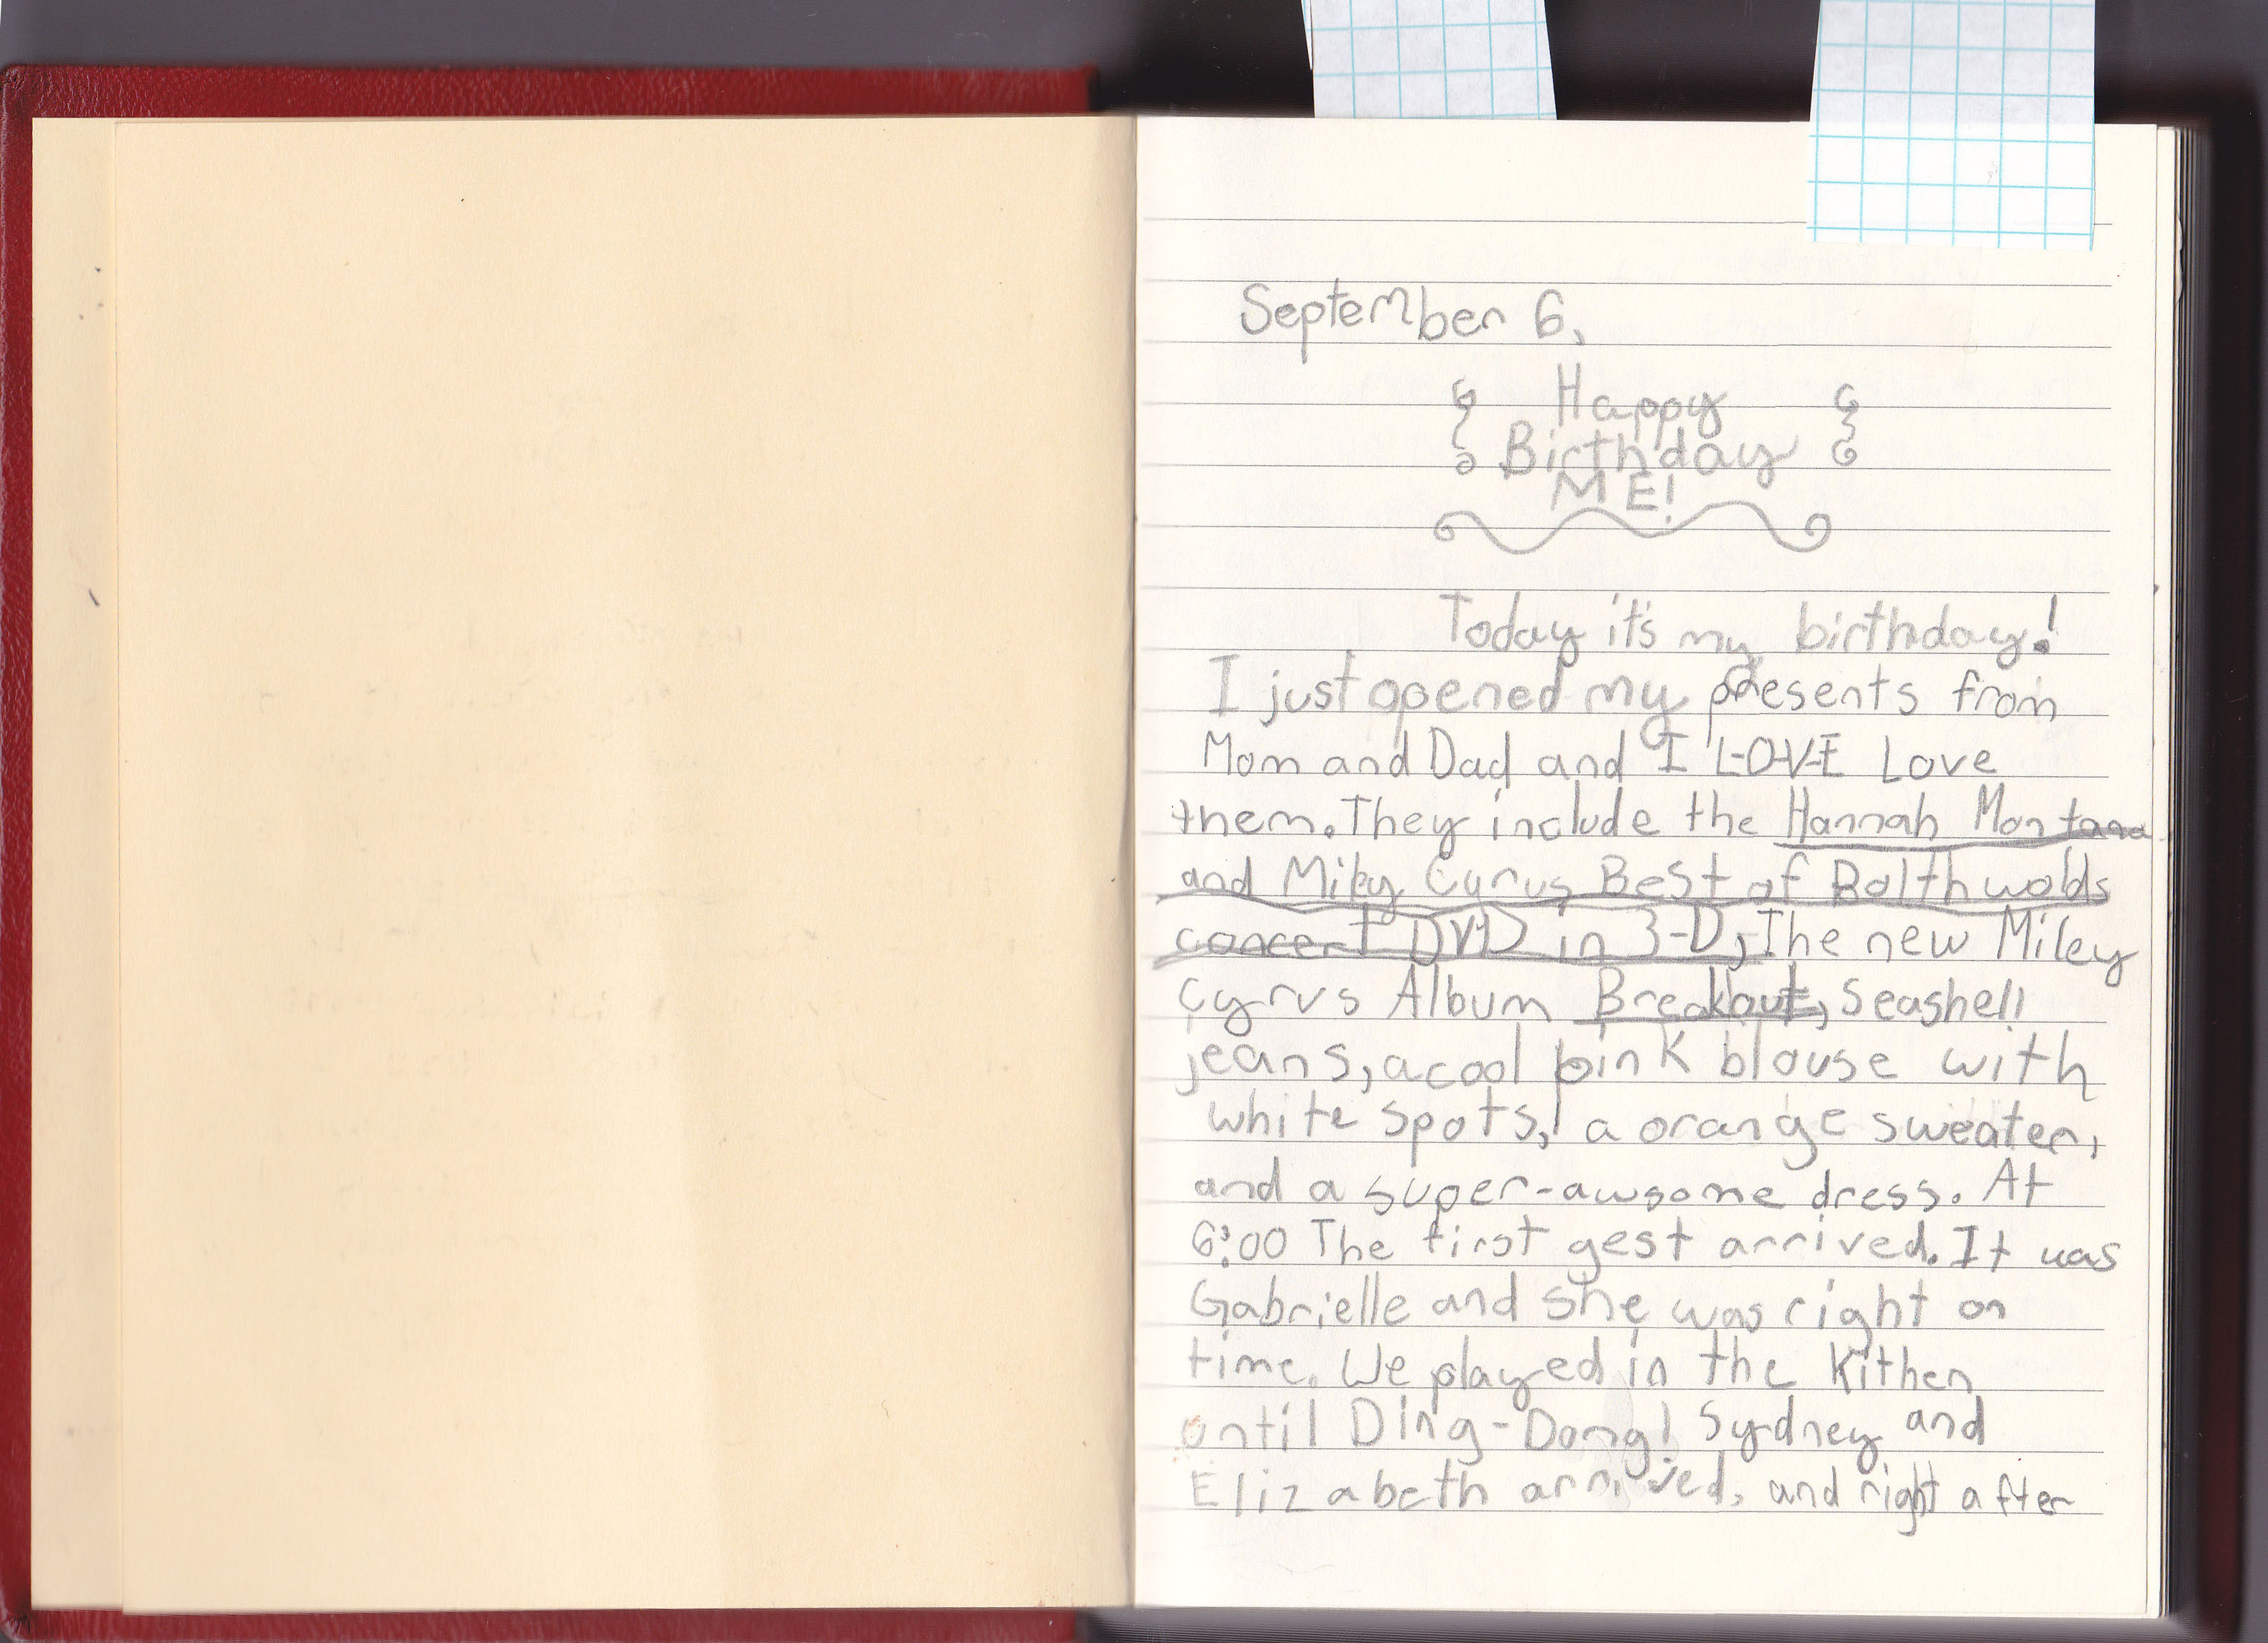 September 6,
Happy
Birthday
ME!
Today it's my birthday!
I just opened my presents from
Mom and Dad and I L-O-V-E Love
them. They include the Hannah Montana
and Miley Cyrus Best of Bolth wolds
concert DVD in 3-D, The new Miley
Cyrus Album Breakout, seashell
jeans, a cool pink blouse with
white spots, a orange sweater,
and a super-awsome dress. At
6:00 The first gest arrived. It was
Gabrielle and she was right on
time. We played in the Kithen
until Ding-Dong! Sydney and
Elizabeth arrived, and right after